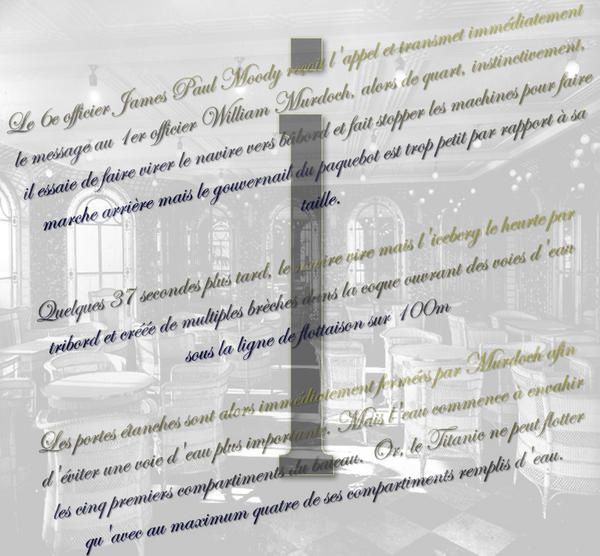 Le 6e officier James Paul Moody reçoit l'appel et transmet immédiatement
le message au 1er officier William Murdoch, alors de quart, instinctivement,
il essaie de faire virer le navire vers bâbord et fait stopper les machines pour faire
marche arrière mais le gouvernail du paquebot est trop petit par rapport à sa
taille.
Quelques 37 secondes plus tard, le navire vire mais l'iceberg le heurte par
tribord et créée de multiples brèches dans la coque ouvrant des voies d'eau
sous la ligne de flottaison sur 100m
Les portes étanches sont alors immédiatement fermées par Murdoch afin
d'éviter une voie d'eau plus importante. Mais l'eau commence à envahir
les cinq premiers compartiments du bateau. Or, le Titanic ne peut flotter
qu'avec au maximum quatre de ses compartiments remplis d'eau.